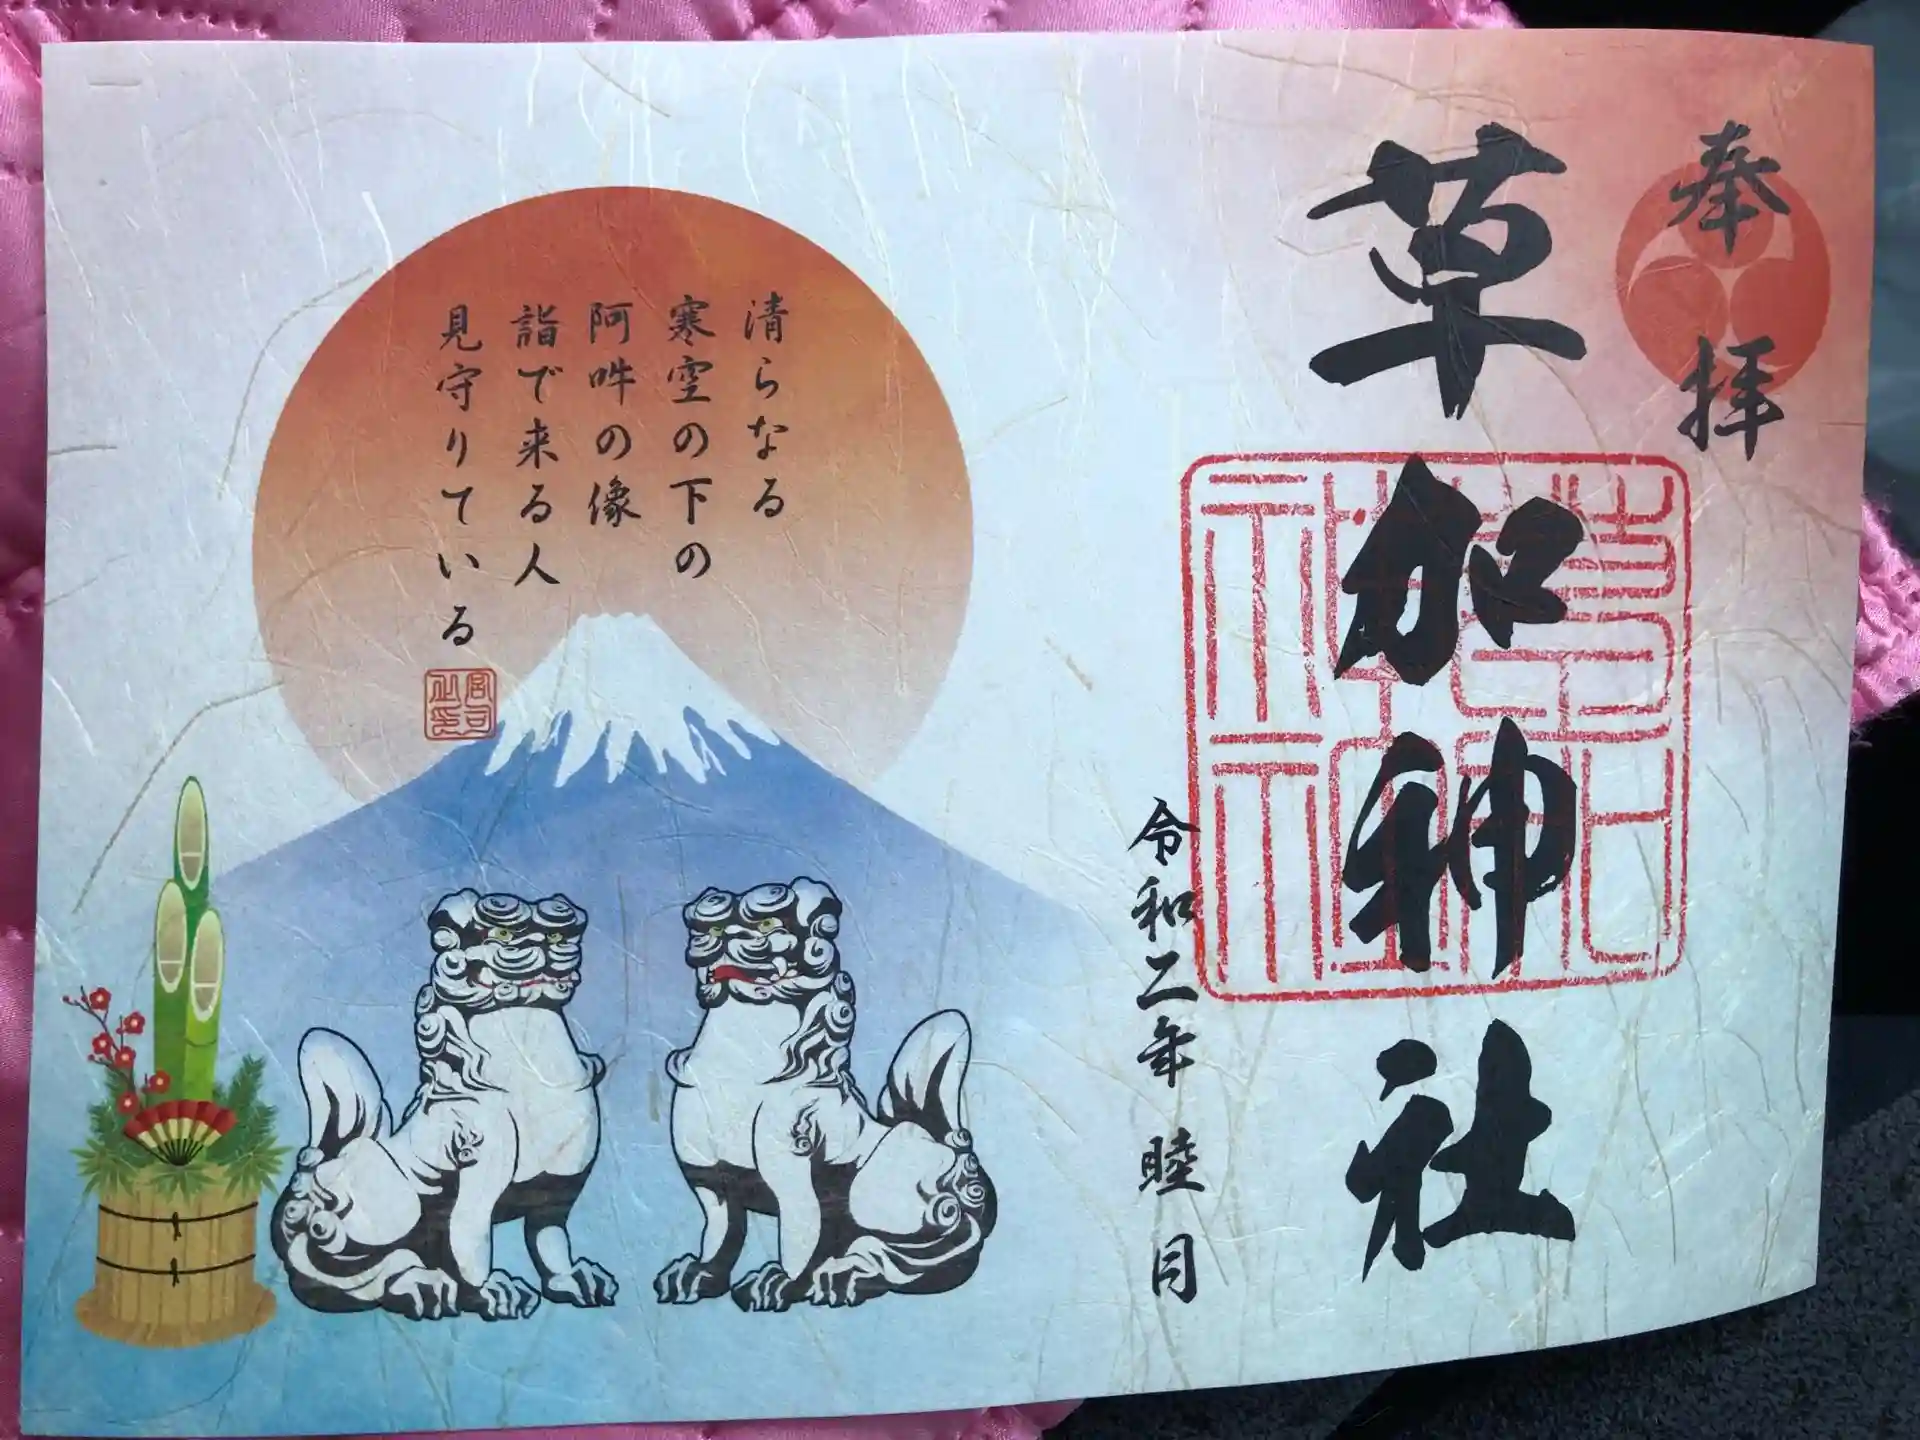 奉拝
草加神社
令和二年 睦月
清らなる
寒空の下の
阿吽の像
詣で来る人
見守りている
宮司之印